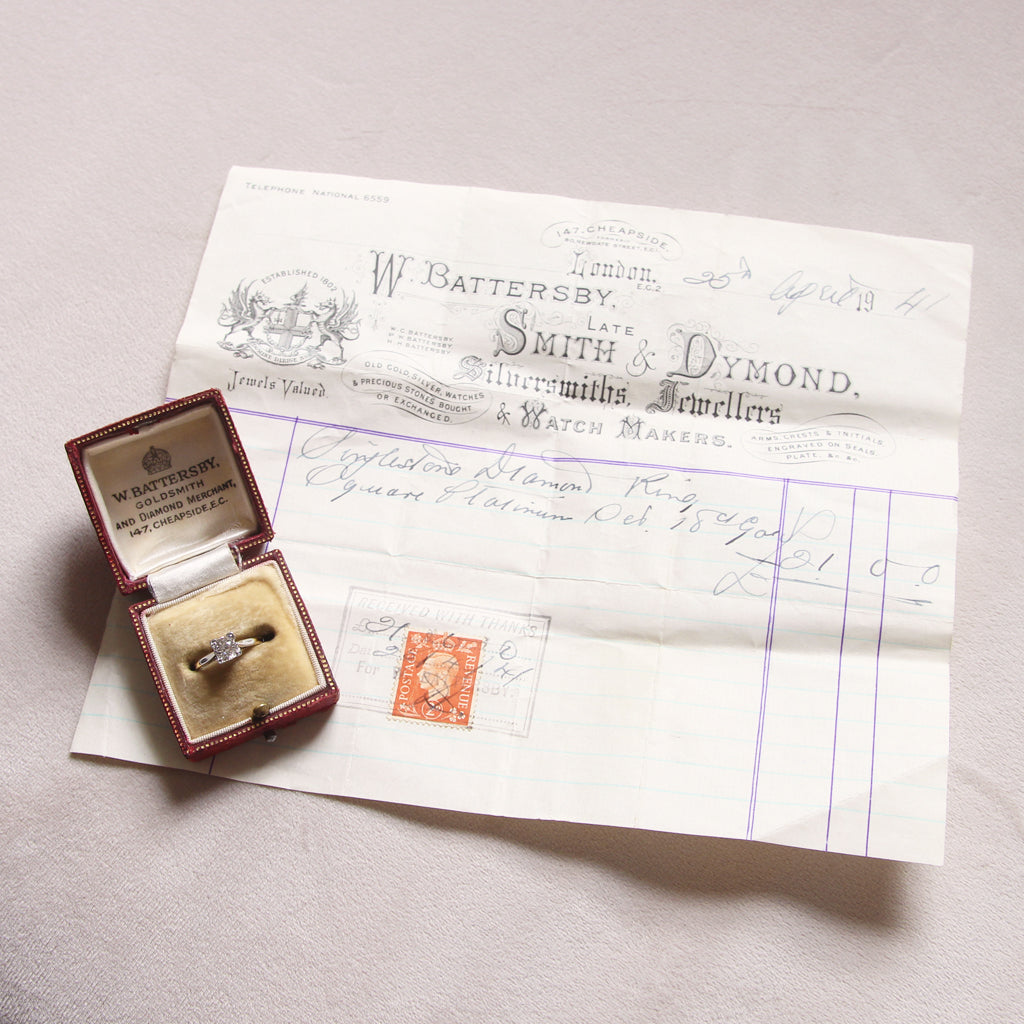 TELEPHONE NATIONAL 6559
147, CHEAPSIDE,
80, NEWGATE STREET, E.C.
London,
E.C.2
25th April 19 41
ESTABLISHED 1802
W. BATTERSBY,
LATE
SMITH & DYMOND,
W. C. BATTERSBY.
P. W. BATTERSBY.
H. H. BATTERSBY.
Silversmiths, Jewellers
& WATCH MAKERS.
Jewels Valued
OLD GOLD, SILVER, WATCHES
& PRECIOUS STONES BOUGHT
OR EXCHANGED.
ARMS, CRESTS & INITIALS
ENGRAVED ON SEALS,
PLATE, &c. &c.
Singlestone Diamond Ring
Square Platinum 18ct
£21 0 0
RECEIVED WITH THANKS
£ 21 0
Date 4 41
For
POSTAGE
REVENUE
W. BATTERSBY,
GOLDSMITH
AND DIAMOND MERCHANT,
147, CHEAPSIDE, E.C.